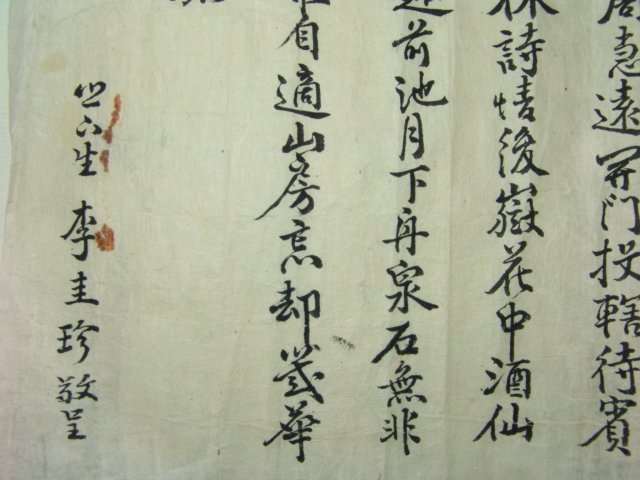 惠遠開門投轄待賓
詩情後嶽花中酒仙
前池月下舟泉石無非
自適山房忘却幾華
生 李圭珍 敬呈